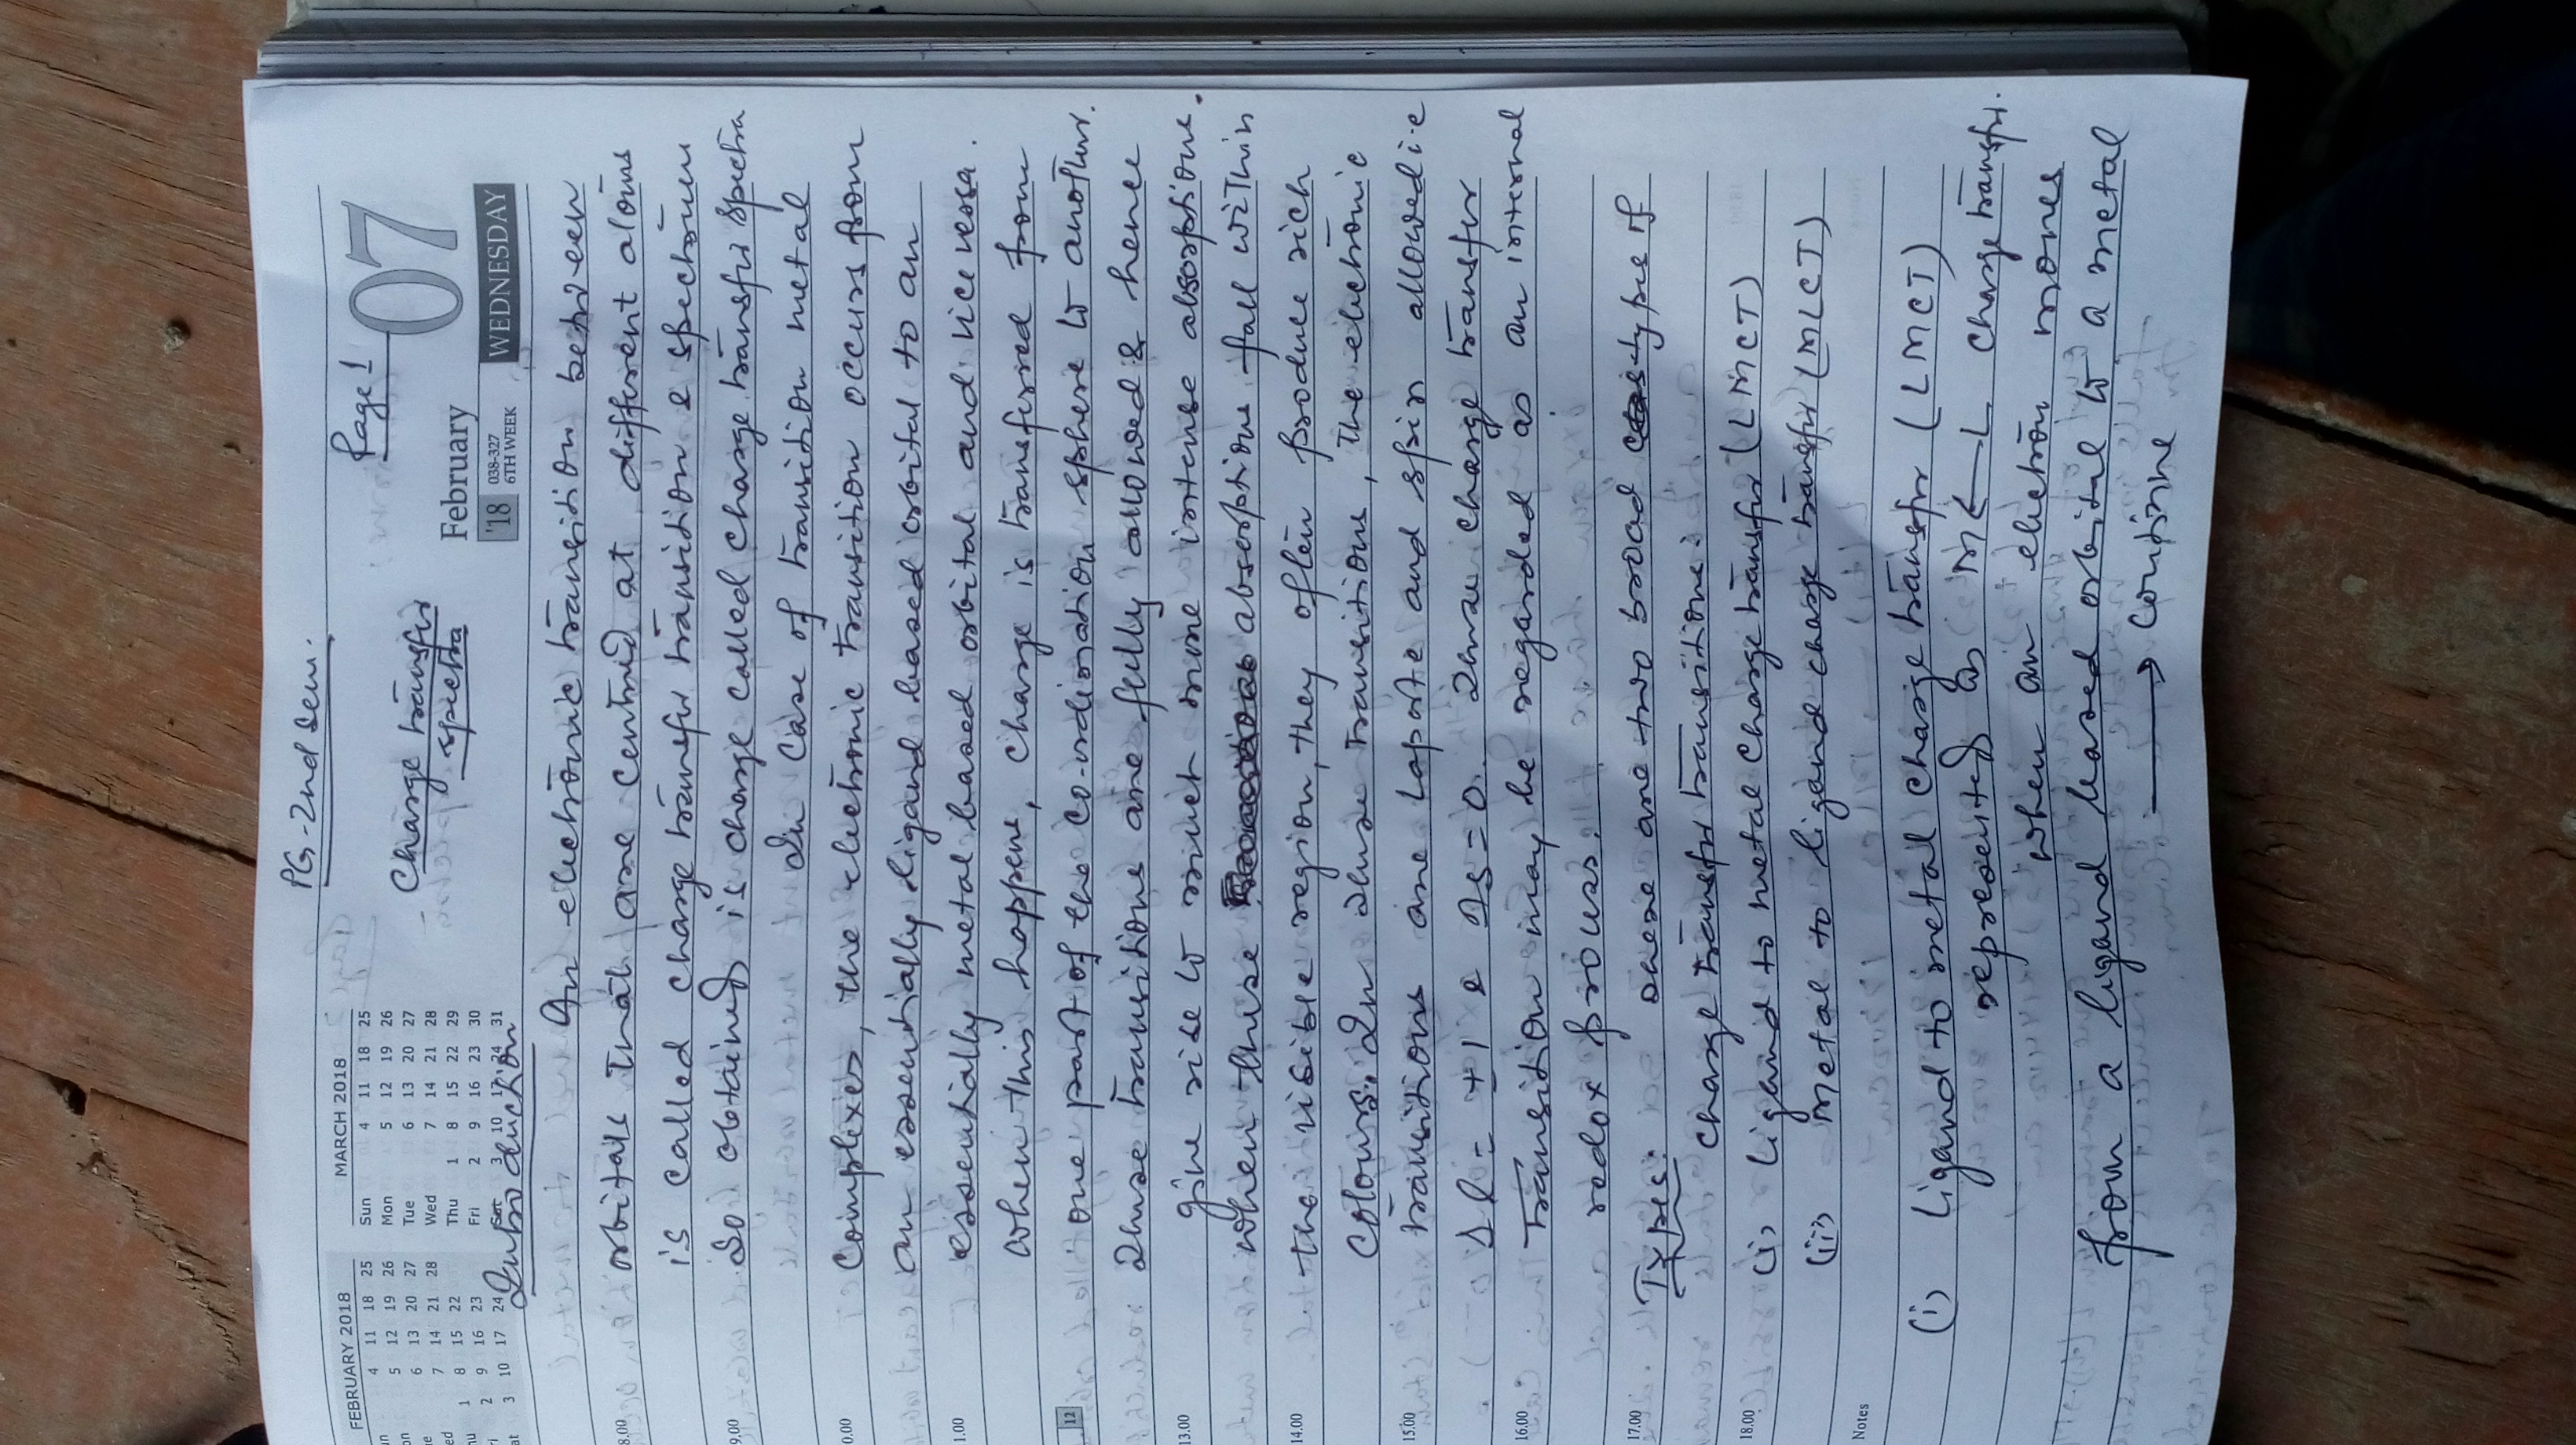 PG-2nd Sem.
Page 1
Charge transfer
spectra
FEBRUARY 2018
4 11 18 25
5 12 19 26
6 13 20 27
7 14 21 28
1 8 15 22
2 9 16 23
3 10 17 24
MARCH 2018
Sun 4 11 18 25
Mon 5 12 19 26
Tue 6 13 20 27
Wed 7 14 21 28
Thu 1 8 15 22 29
Fri 2 9 16 23 30
Sat 3 10 17 24 31
February
07
'18
038-327
6TH WEEK
WEDNESDAY
Introduction
An electronic transition between
orbitals that are centred at different atoms
is called charge transfer transition & spectrum
so obtained is charge called charge transfer spectra
In case of transition metal
complexes, the electronic transition occurs from
an essentially ligand based orbital to an
essentially metal based orbital and vice versa.
when this happens, charge is transferred from
one part of the co-ordination sphere to another.
These transitions are fully allowed & hence
give rise to much more intense absorptions.
when these absorptions fall within
the visible region, they often produce rich
colours. In these transitions, the electronic
transitions are Laporte and spin allowed i.e
Δl = ±1 & ΔS = 0. These charge transfer
transition may be regarded as an internal
redox process.
Types:
There are two broad types of
charge transfer transitions.
(i) Ligand to metal charge transfer (LMCT)
(ii) Metal to ligand charge transfer (MLCT)
(i) Ligand to metal charge transfer (LMCT)
represented as M ← L charge transfer.
when an electron moves
from a ligand based orbital to a metal
→ continue
12
13.00
14.00
15.00
16.00
17.00
18.00
Notes